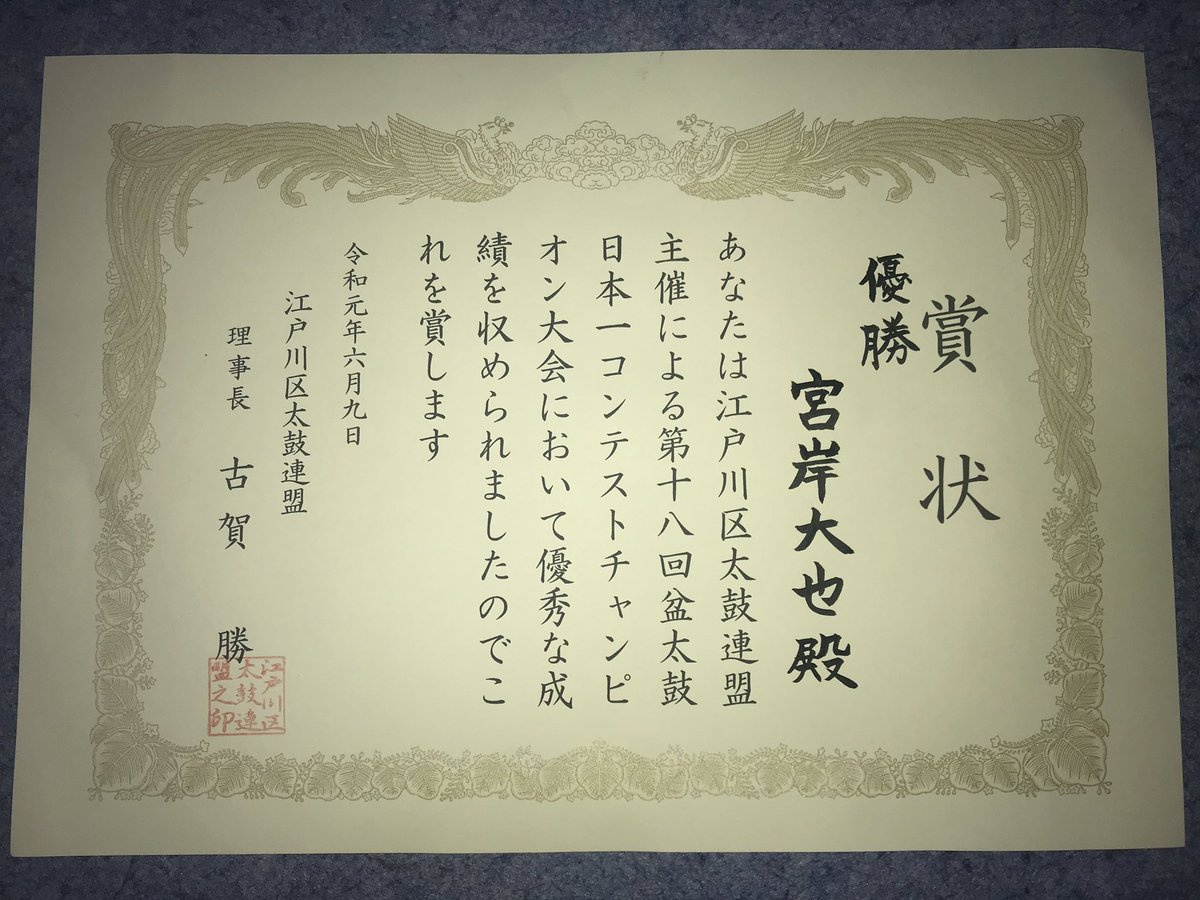 賞状
優勝
宮岸大也殿
あなたは江戸川区太鼓連盟
主催による第十八回盆太鼓
日本一コンテストチャンピ
オン大会において優秀な成
績を収められましたのでこ
れを賞します
令和元年六月九日
江戸川区太鼓連盟
理事長 古賀 勝
江戸川区
太鼓連
盟之印